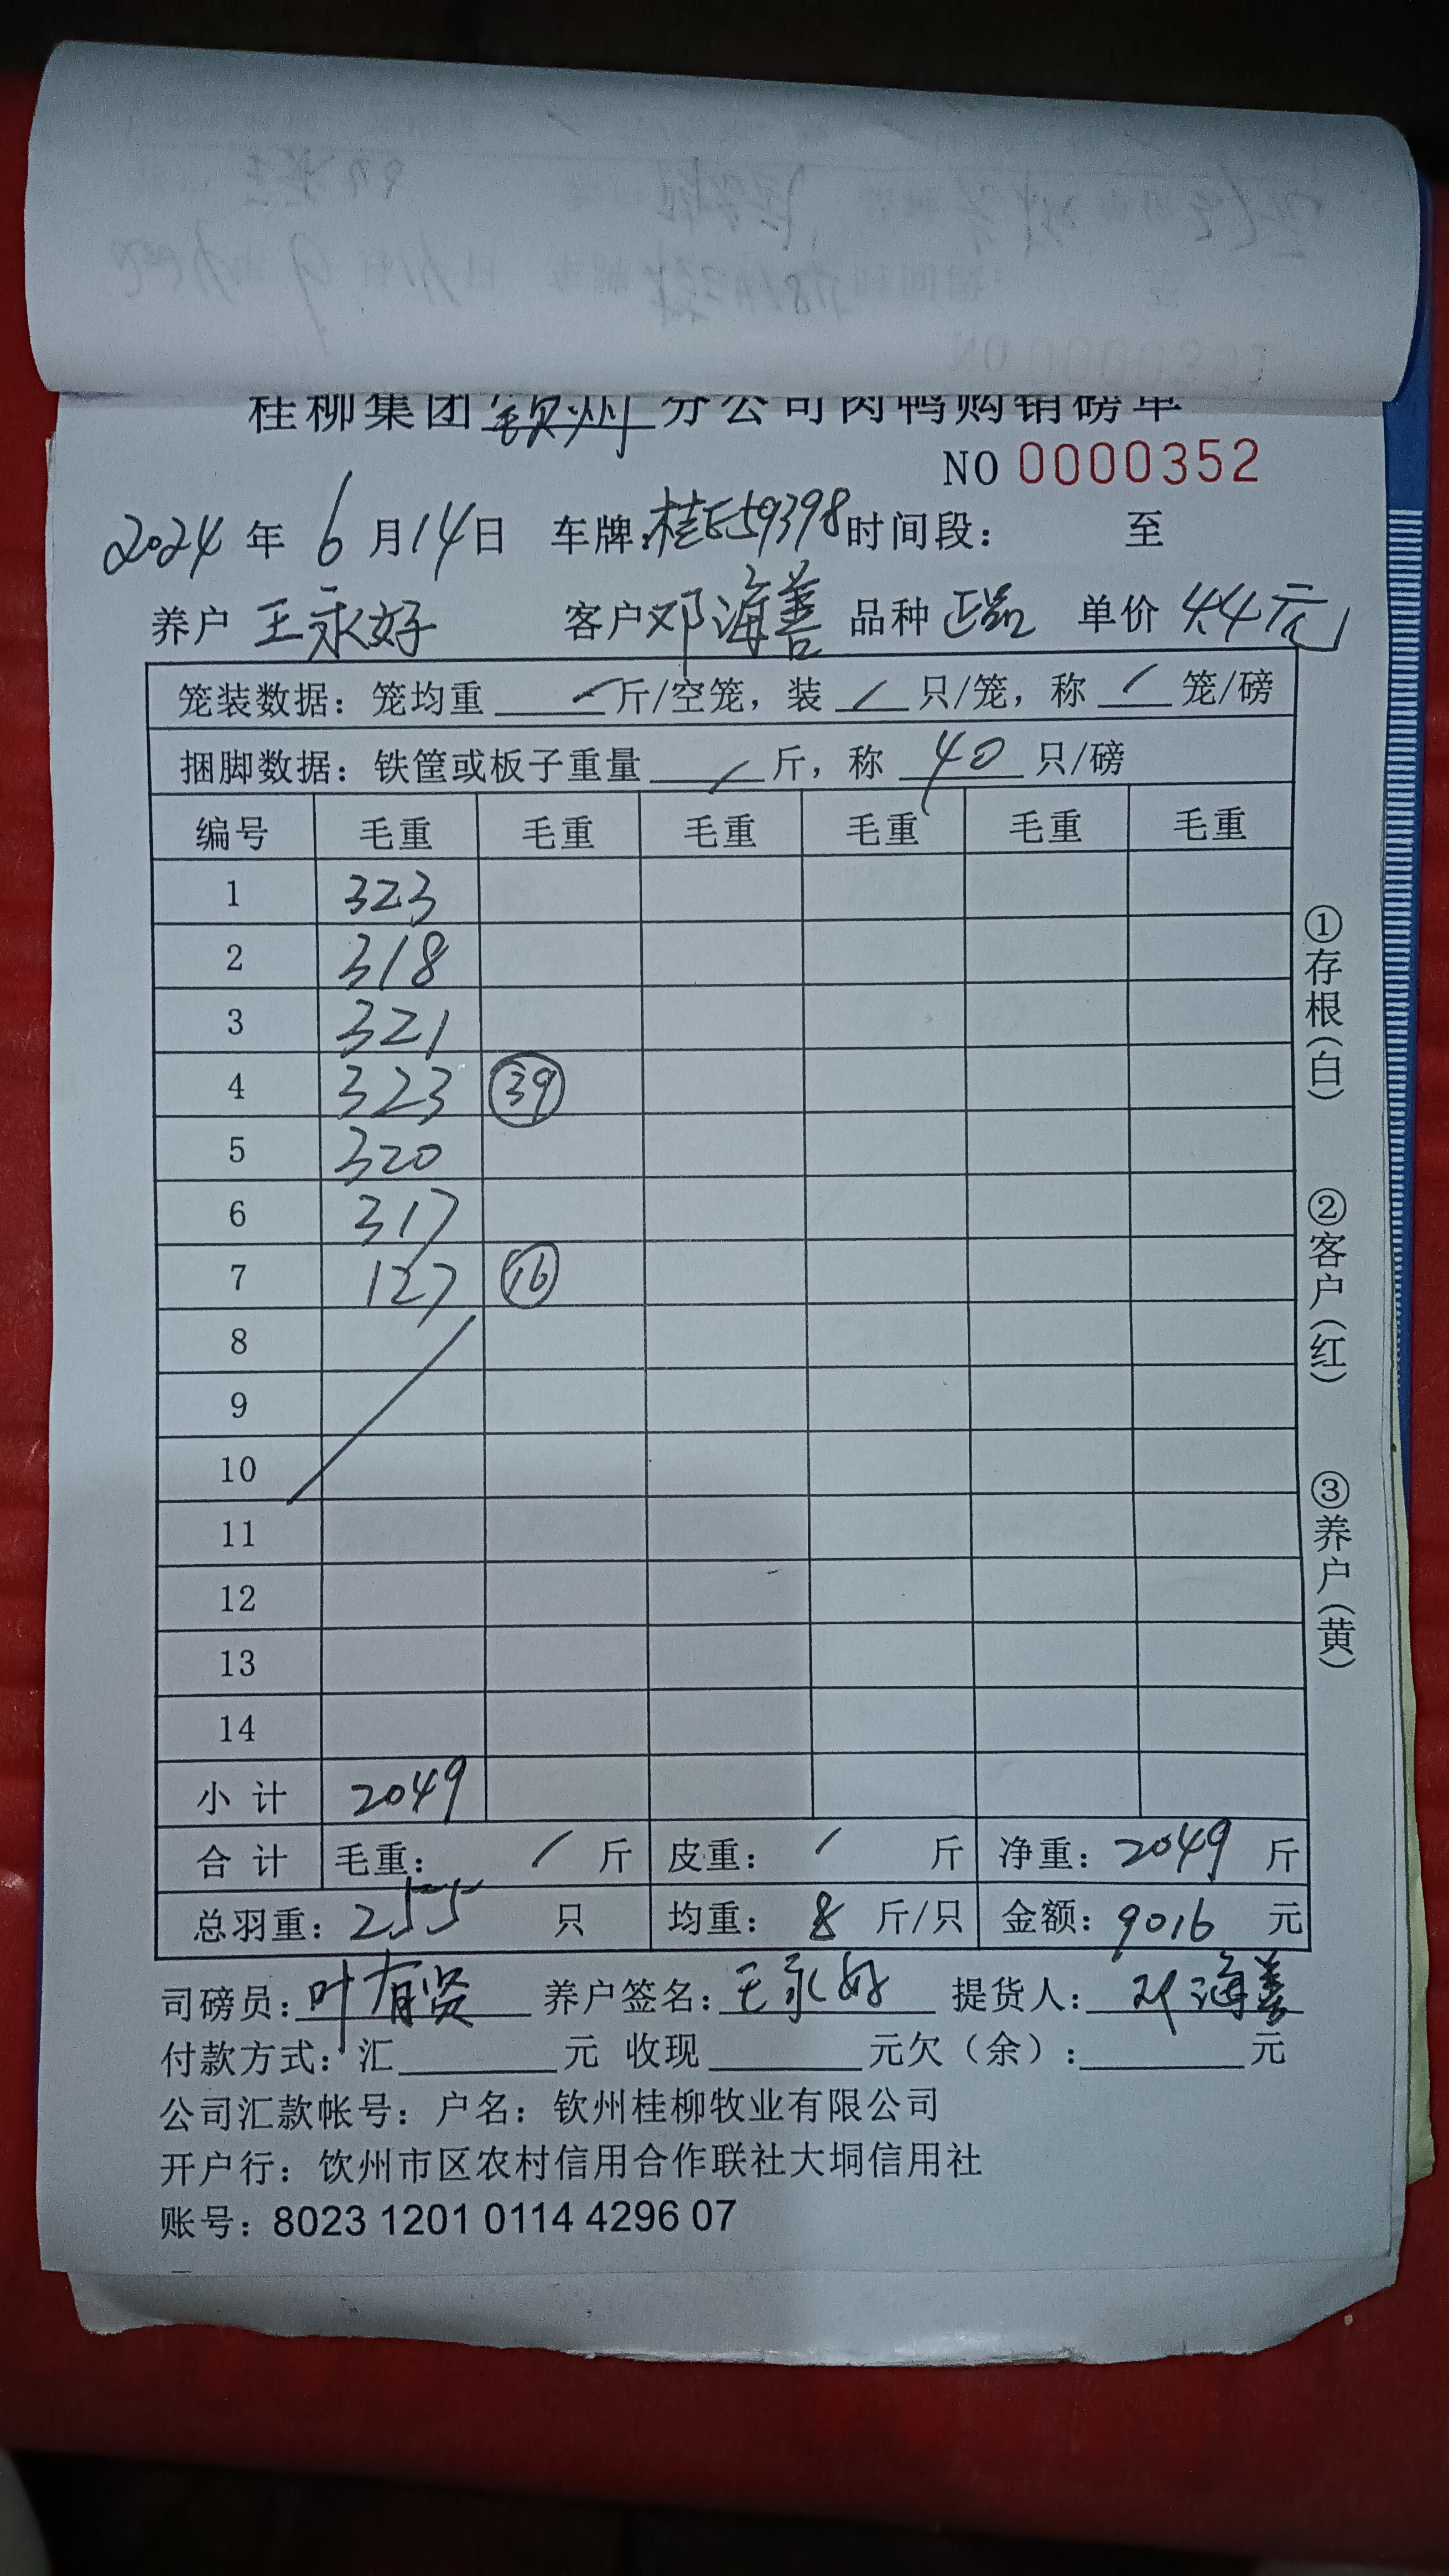 桂柳集团钦州分公司肉鸭购销磅单
NO 0000352
2024 年 6 月 14 日 车牌:桂E59398 时间段: 至
养户 王永好 客户 邓海善 品种 正品 单价 4.4元
笼装数据：笼均重 / 斤/空笼，装 / 只/笼，称 / 笼/磅
捆脚数据：铁筐或板子重量 / 斤，称 40 只/磅
编号 毛重 毛重 毛重 毛重 毛重 毛重
1 323
2 318
3 321
4 323 39
5 320
6 317
7 127 16
8
9
10
11
12
13
14
小计 2049
合计 毛重： / 斤 皮重： / 斤 净重：2049 斤
总羽重：255 只 均重：8 斤/只 金额：9016 元
司磅员：叶有贤 养户签名：王永好 提货人：邓海善
付款方式：汇 元 收现 元欠（余）： 元
公司汇款帐号：户名：钦州桂柳牧业有限公司
开户行：饮州市区农村信用合作联社大垌信用社
账号：8023 1201 0114 4296 07
①存根（白）
②客户（红）
③养户（黄）